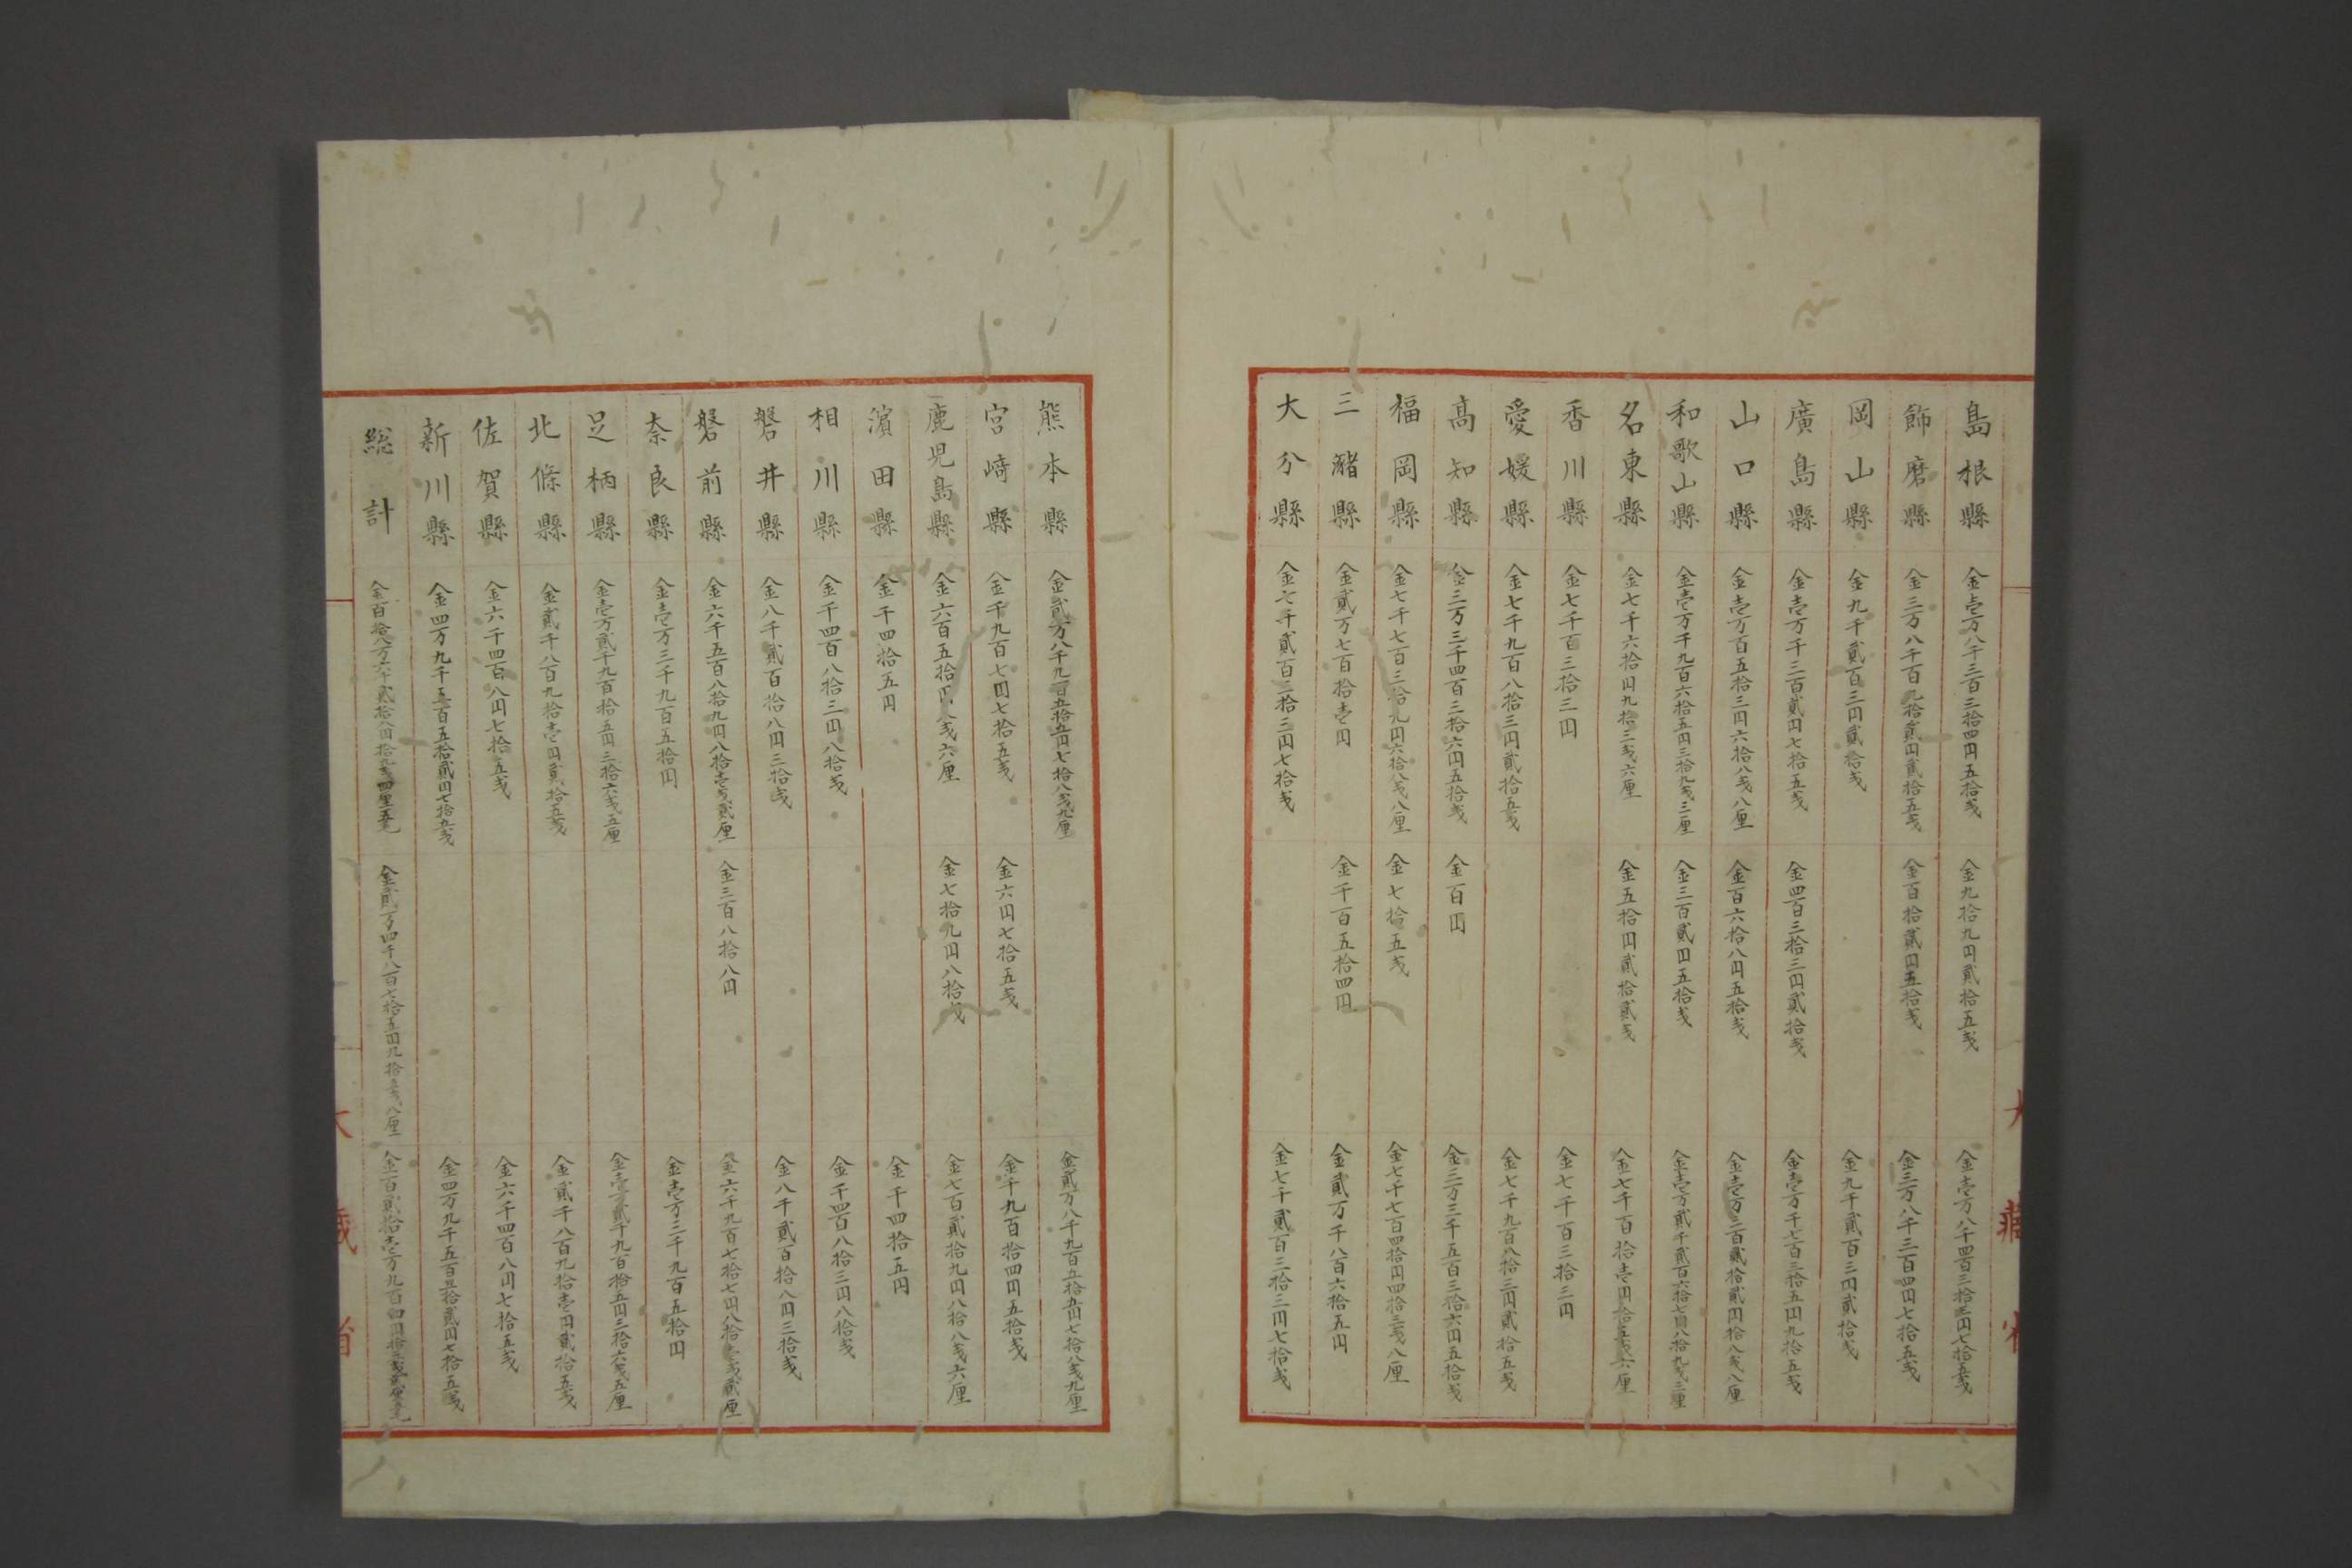 島根縣 金壱万八千三百三拾四円五拾戋 金九拾九円貳拾五戋 金壱万八千四百三拾三円七拾五戋
飾磨縣 金三万八千百九拾貳円貳拾五戋 金百拾貳円五拾戋 金三万八千三百四円七拾五戋
岡山縣 金九千貳百三円貳拾戋 金九千貳百三円貳拾戋
廣島縣 金壱万千三百貳円七拾五戋 金四百三拾三円貳拾戋 金壱万千七百三拾五円九拾五戋
山口縣 金壱万百五拾三円六拾八戋八厘 金百六拾八円五拾戋 金壱万三百貳拾貳円拾八戋八厘
和歌山縣 金壱万千九百六拾五円三拾九戋三厘 金三百貳円五拾戋 金壱万貳千貳百六拾七円八拾九戋三厘
名東縣 金七千六拾円九拾三戋六厘 金五拾円貳拾貳戋 金七千百拾壱円拾五戋六厘
香川縣 金七千百三拾三円 金七千百三拾三円
愛媛縣 金七千九百八拾三円貳拾五戋 金七千九百八拾三円貳拾五戋
髙知縣 金三万三千四百三拾六円五拾戋 金百円 金三万三千五百三拾六円五拾戋
福岡縣 金七千七百三拾九円六拾八戋八厘 金七拾五戋 金七千七百四拾円四拾三戋八厘
三瀦縣 金貳万七百拾壱円 金千百五拾四円 金貳万千八百六拾五円
大分縣 金七千貳百三拾三円七拾戋 金七千貳百三拾三円七拾戋
大藏省
熊本縣 金貳万八千九百五拾五円七拾八戋九厘 金貳万八千九百五拾五円七拾八戋九厘
宮﨑縣 金千九百七円七拾五戋 金六円七拾五戋 金千九百拾四円五拾戋
鹿児島縣 金六百五拾円八戋六厘 金七拾九円八拾戋 金七百貳拾九円八拾八戋六厘
濵田縣 金千四拾五円 金千四拾五円
相川縣 金千四百八拾三円八拾戋 金千四百八拾三円八拾戋
磐井縣 金八千貳百拾八円三拾戋 金八千貳百拾八円三拾戋
磐前縣 金六千五百八拾九円八拾壱戋貳厘 金三百八拾八円 金六千九百七拾七円八拾壱戋貳厘
奈良縣 金壱万三千九百五拾円 金壱万三千九百五拾円
足柄縣 金壱万貳千九百拾五円三拾六戋五厘 金壱万貳千九百拾五円三拾六戋五厘
北條縣 金貳千八百九拾壱円貳拾五戋 金貳千八百九拾壱円貳拾五戋
佐賀縣 金六千四百八円七拾五戋 金六千四百八円七拾五戋
新川縣 金四万九千五百五拾貳円七拾五戋 金四万九千五百五拾貳円七拾五戋
総計 金百拾八万六千貳拾八円拾九戋四厘五毛 金貳万四千八百七拾五円九拾五戋八厘 金百貳拾壱万九百四円拾五戋貳厘五毛
大藏省